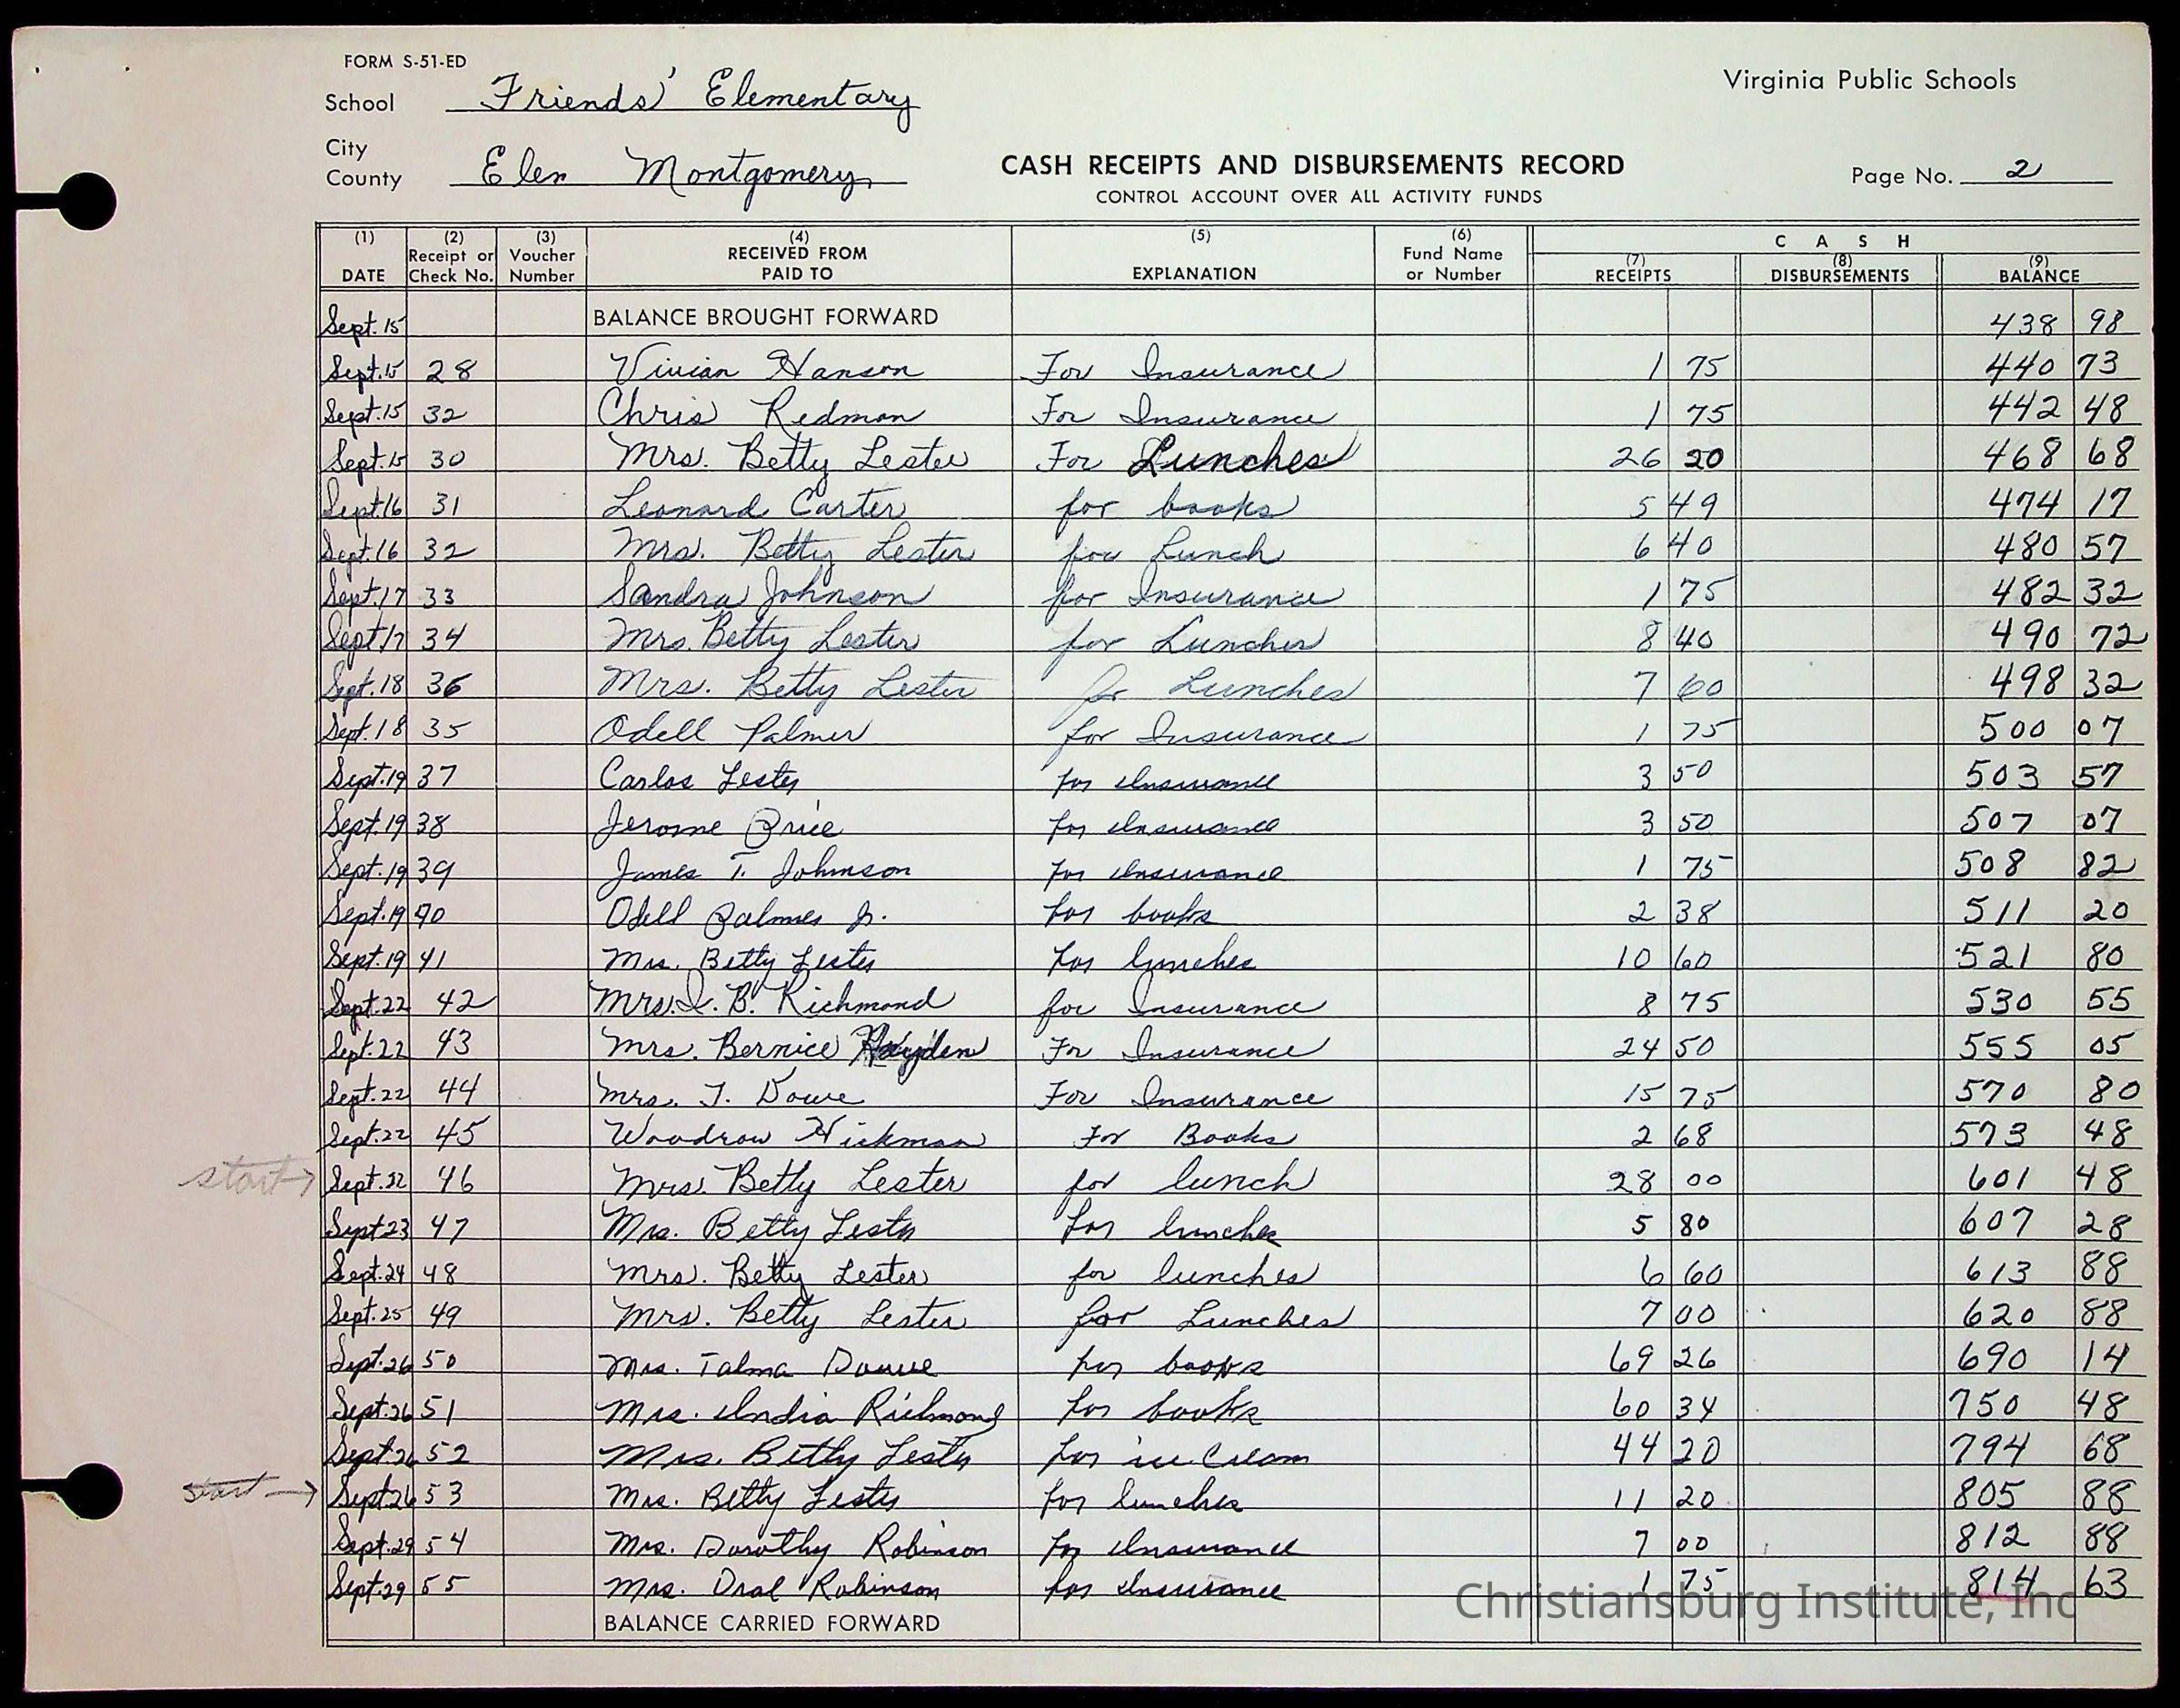 FORM S-51-ED
School Friends' Elementary
Virginia Public Schools
City
County Elem Montgomery
CASH RECEIPTS AND DISBURSEMENTS RECORD
CONTROL ACCOUNT OVER ALL ACTIVITY FUNDS
Page No. 2
(1) DATE (2) Receipt or Check No. (3) Voucher Number (4) RECEIVED FROM PAID TO (5) EXPLANATION (6) Fund Name or Number CASH (7) RECEIPTS (8) DISBURSEMENTS (9) BALANCE
Sept. 15 BALANCE BROUGHT FORWARD 438 98
Sept. 15 28 Vivian Hanson For Insurance 1 75 440 73
Sept. 15 32 Chris Redmon For Insurance 1 75 442 48
Sept. 15 30 Mrs. Betty Lester For Lunches 26 20 468 68
Sept. 16 31 Leonard Carter for books 5 49 474 17
Sept. 16 32 Mrs. Betty Lester for Lunch 6 40 480 57
Sept. 17 33 Sandra Johnson for Insurance 1 75 482 32
Sept 17 34 Mrs. Betty Lester for Lunches 8 40 490 72
Sept. 18 36 Mrs. Betty Lester for Lunches 7 60 498 32
Sept. 18 35 Odell Palmer for Insurance 1 75 500 07
Sept. 19 37 Carlos Lester for Insurance 3 50 503 57
Sept. 19 38 Jerome Price for Insurance 3 50 507 07
Sept. 19 39 James T. Johnson for Insurance 1 75 508 82
Sept. 19 40 Odell Palmer Jr. for books 2 38 511 20
Sept. 19 41 Mrs. Betty Lester for lunches 10 60 521 80
Sept. 22 42 Mrs. I. B. Richmond for Insurance 8 75 530 55
Sept. 22 43 Mrs. Bernice Hayden For Insurance 24 50 555 05
Sept. 22 44 Mrs. T. Dowe For Insurance 15 75 570 80
Sept. 22 45 Woodrow Hickman For Books 2 68 573 48
start → Sept. 22 46 Mrs. Betty Lester for lunch 28 00 601 48
Sept 23 47 Mrs. Betty Lester for lunches 5 80 607 28
Sept. 24 48 Mrs. Betty Lester for lunches 6 60 613 88
Sept. 25 49 Mrs. Betty Lester for Lunches 7 00 620 88
Sept. 26 50 Mrs. Talma Dowe for books 69 26 690 14
Sept. 26 51 Mrs. India Richmond for books 60 34 750 48
Sept. 26 52 Mrs. Betty Lester for ice cream 44 20 794 68
start → Sept 26 53 Mrs. Betty Lester for lunches 11 20 805 88
Sept. 29 54 Mrs. Dorothy Robinson for Insurance 7 00 812 88
Sept. 29 55 Mrs. Oral Robinson for Insurance 1 75 814 63
BALANCE CARRIED FORWARD
Christiansburg Institute, Inc